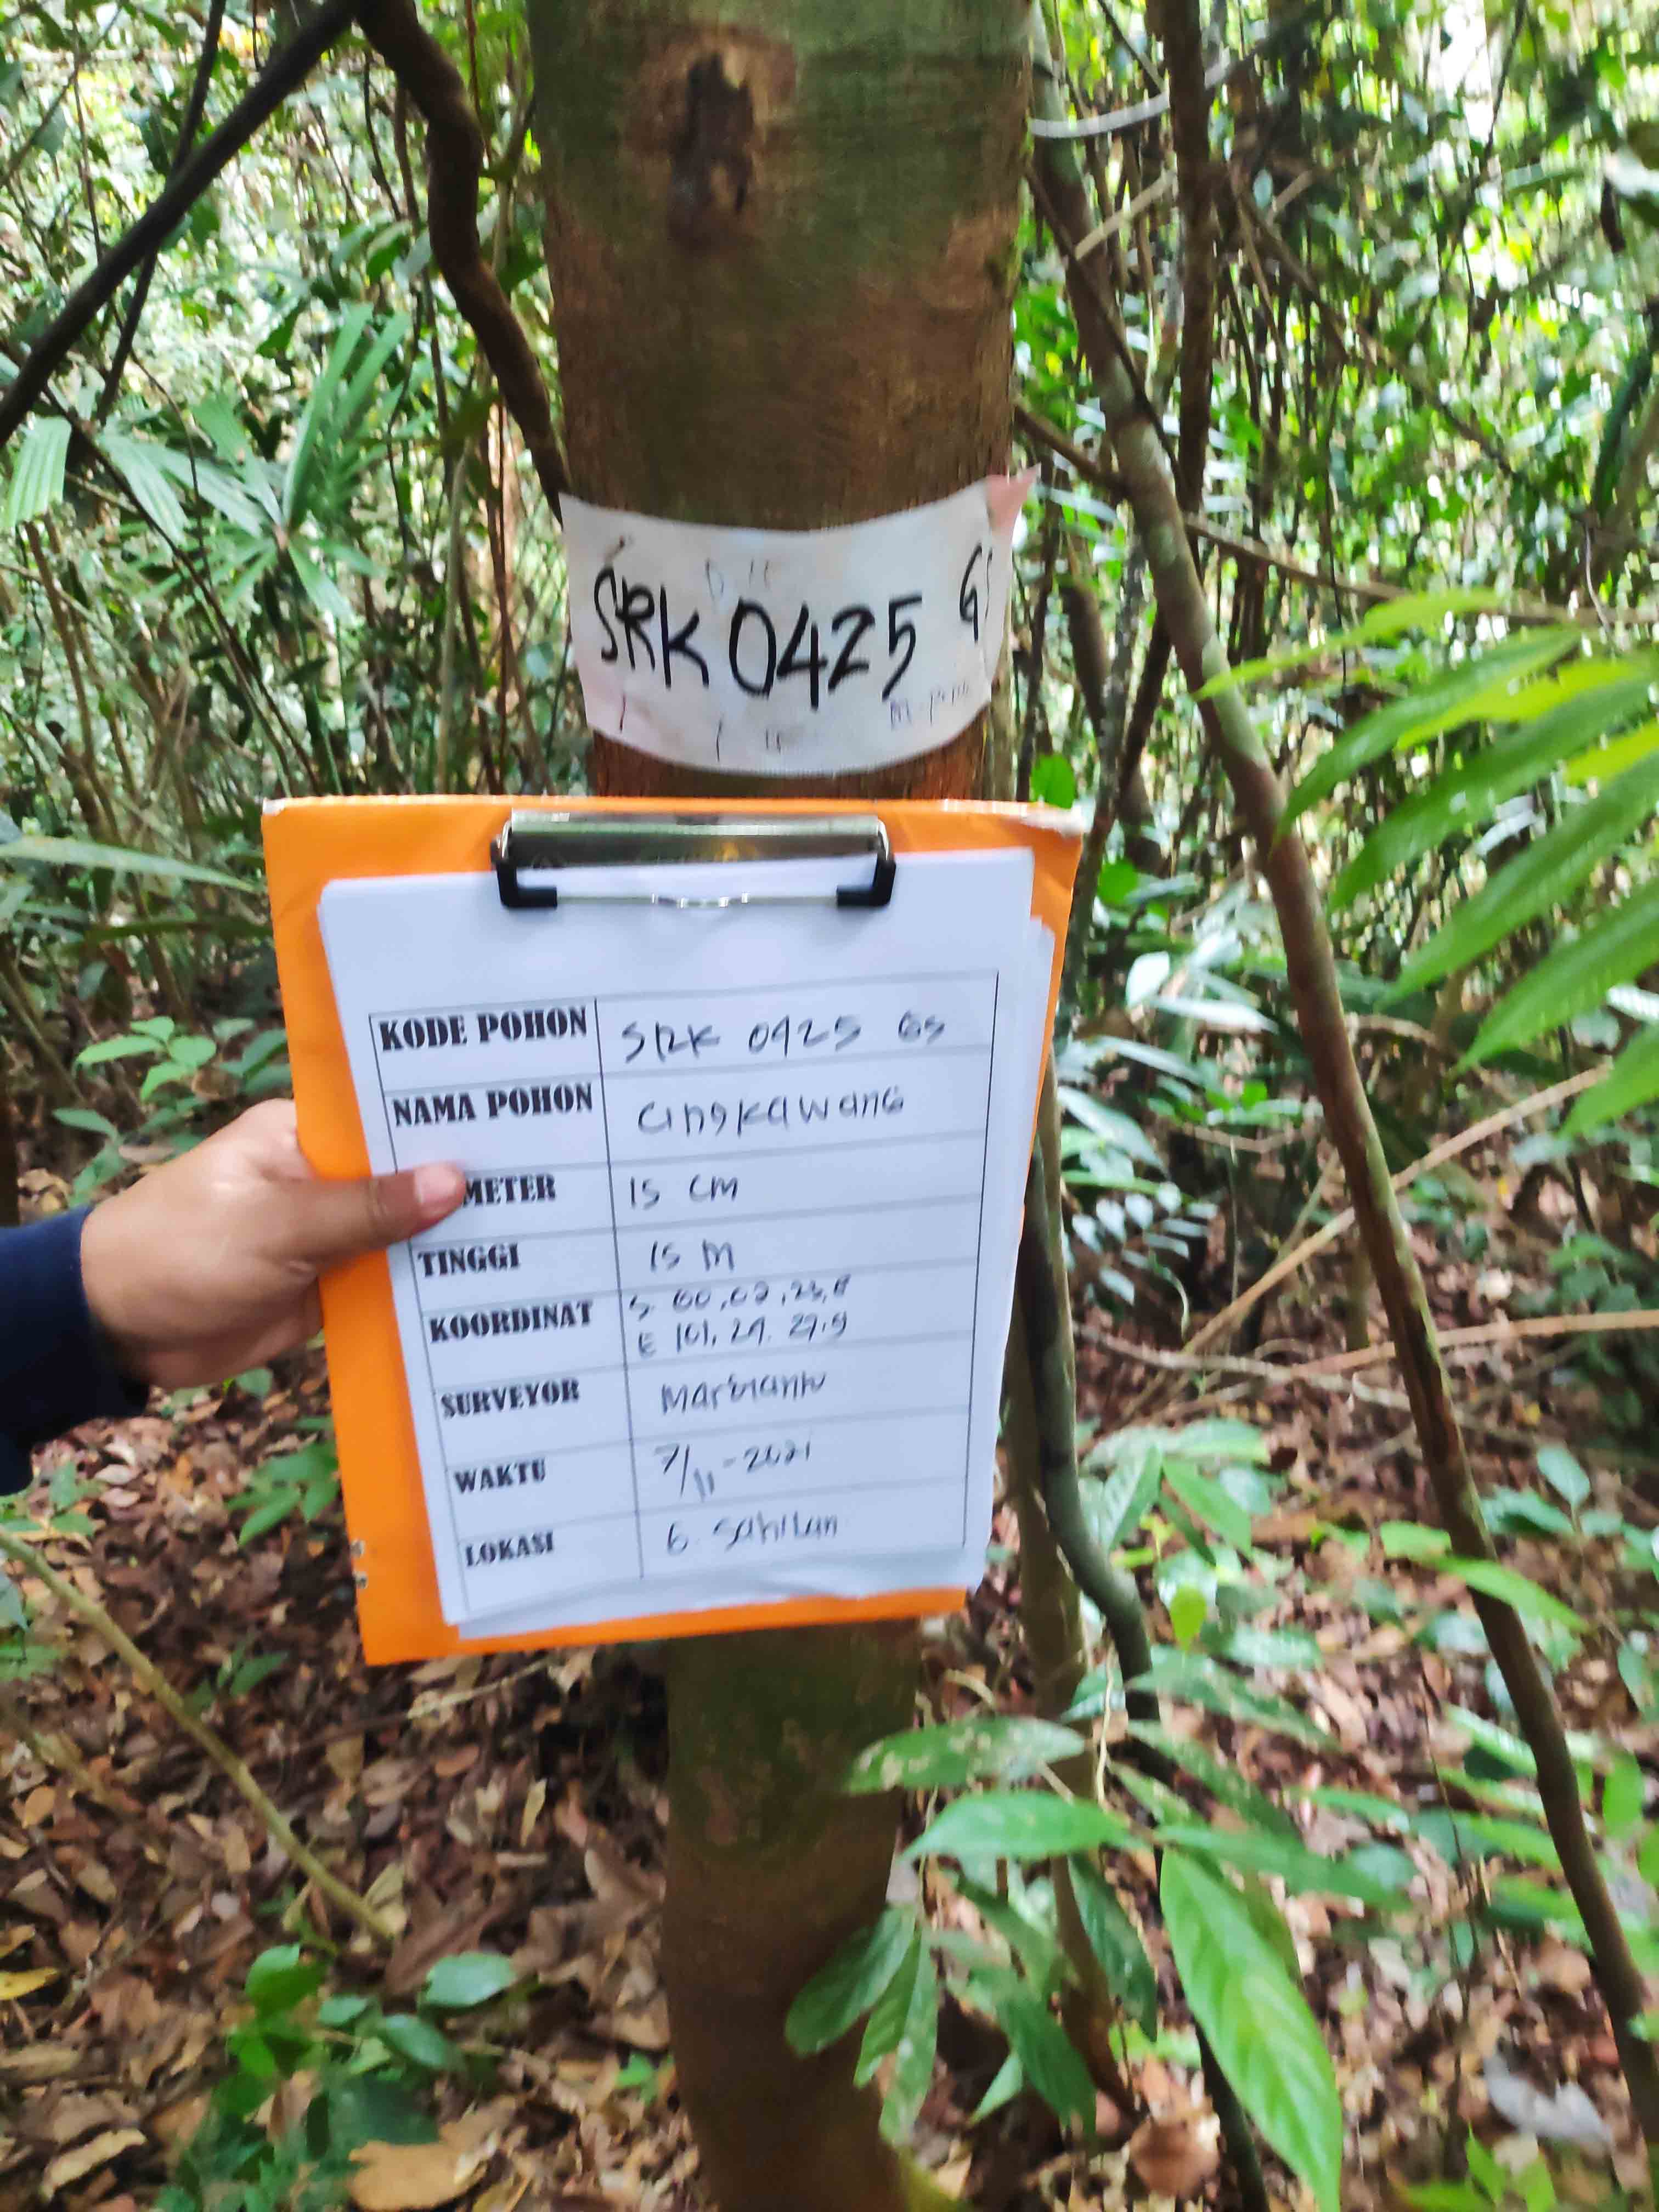 SRK 0425 GS
KODE POHON SRK 0425 GS
NAMA POHON cingkawang
METER 15 CM
TINGGI 15 M
KOORDINAT S. 00,02,23,8
E 101, 29. 27.9
SURVEYOR
WAKTU 7/11-2021
LOKASI G. Sahilan